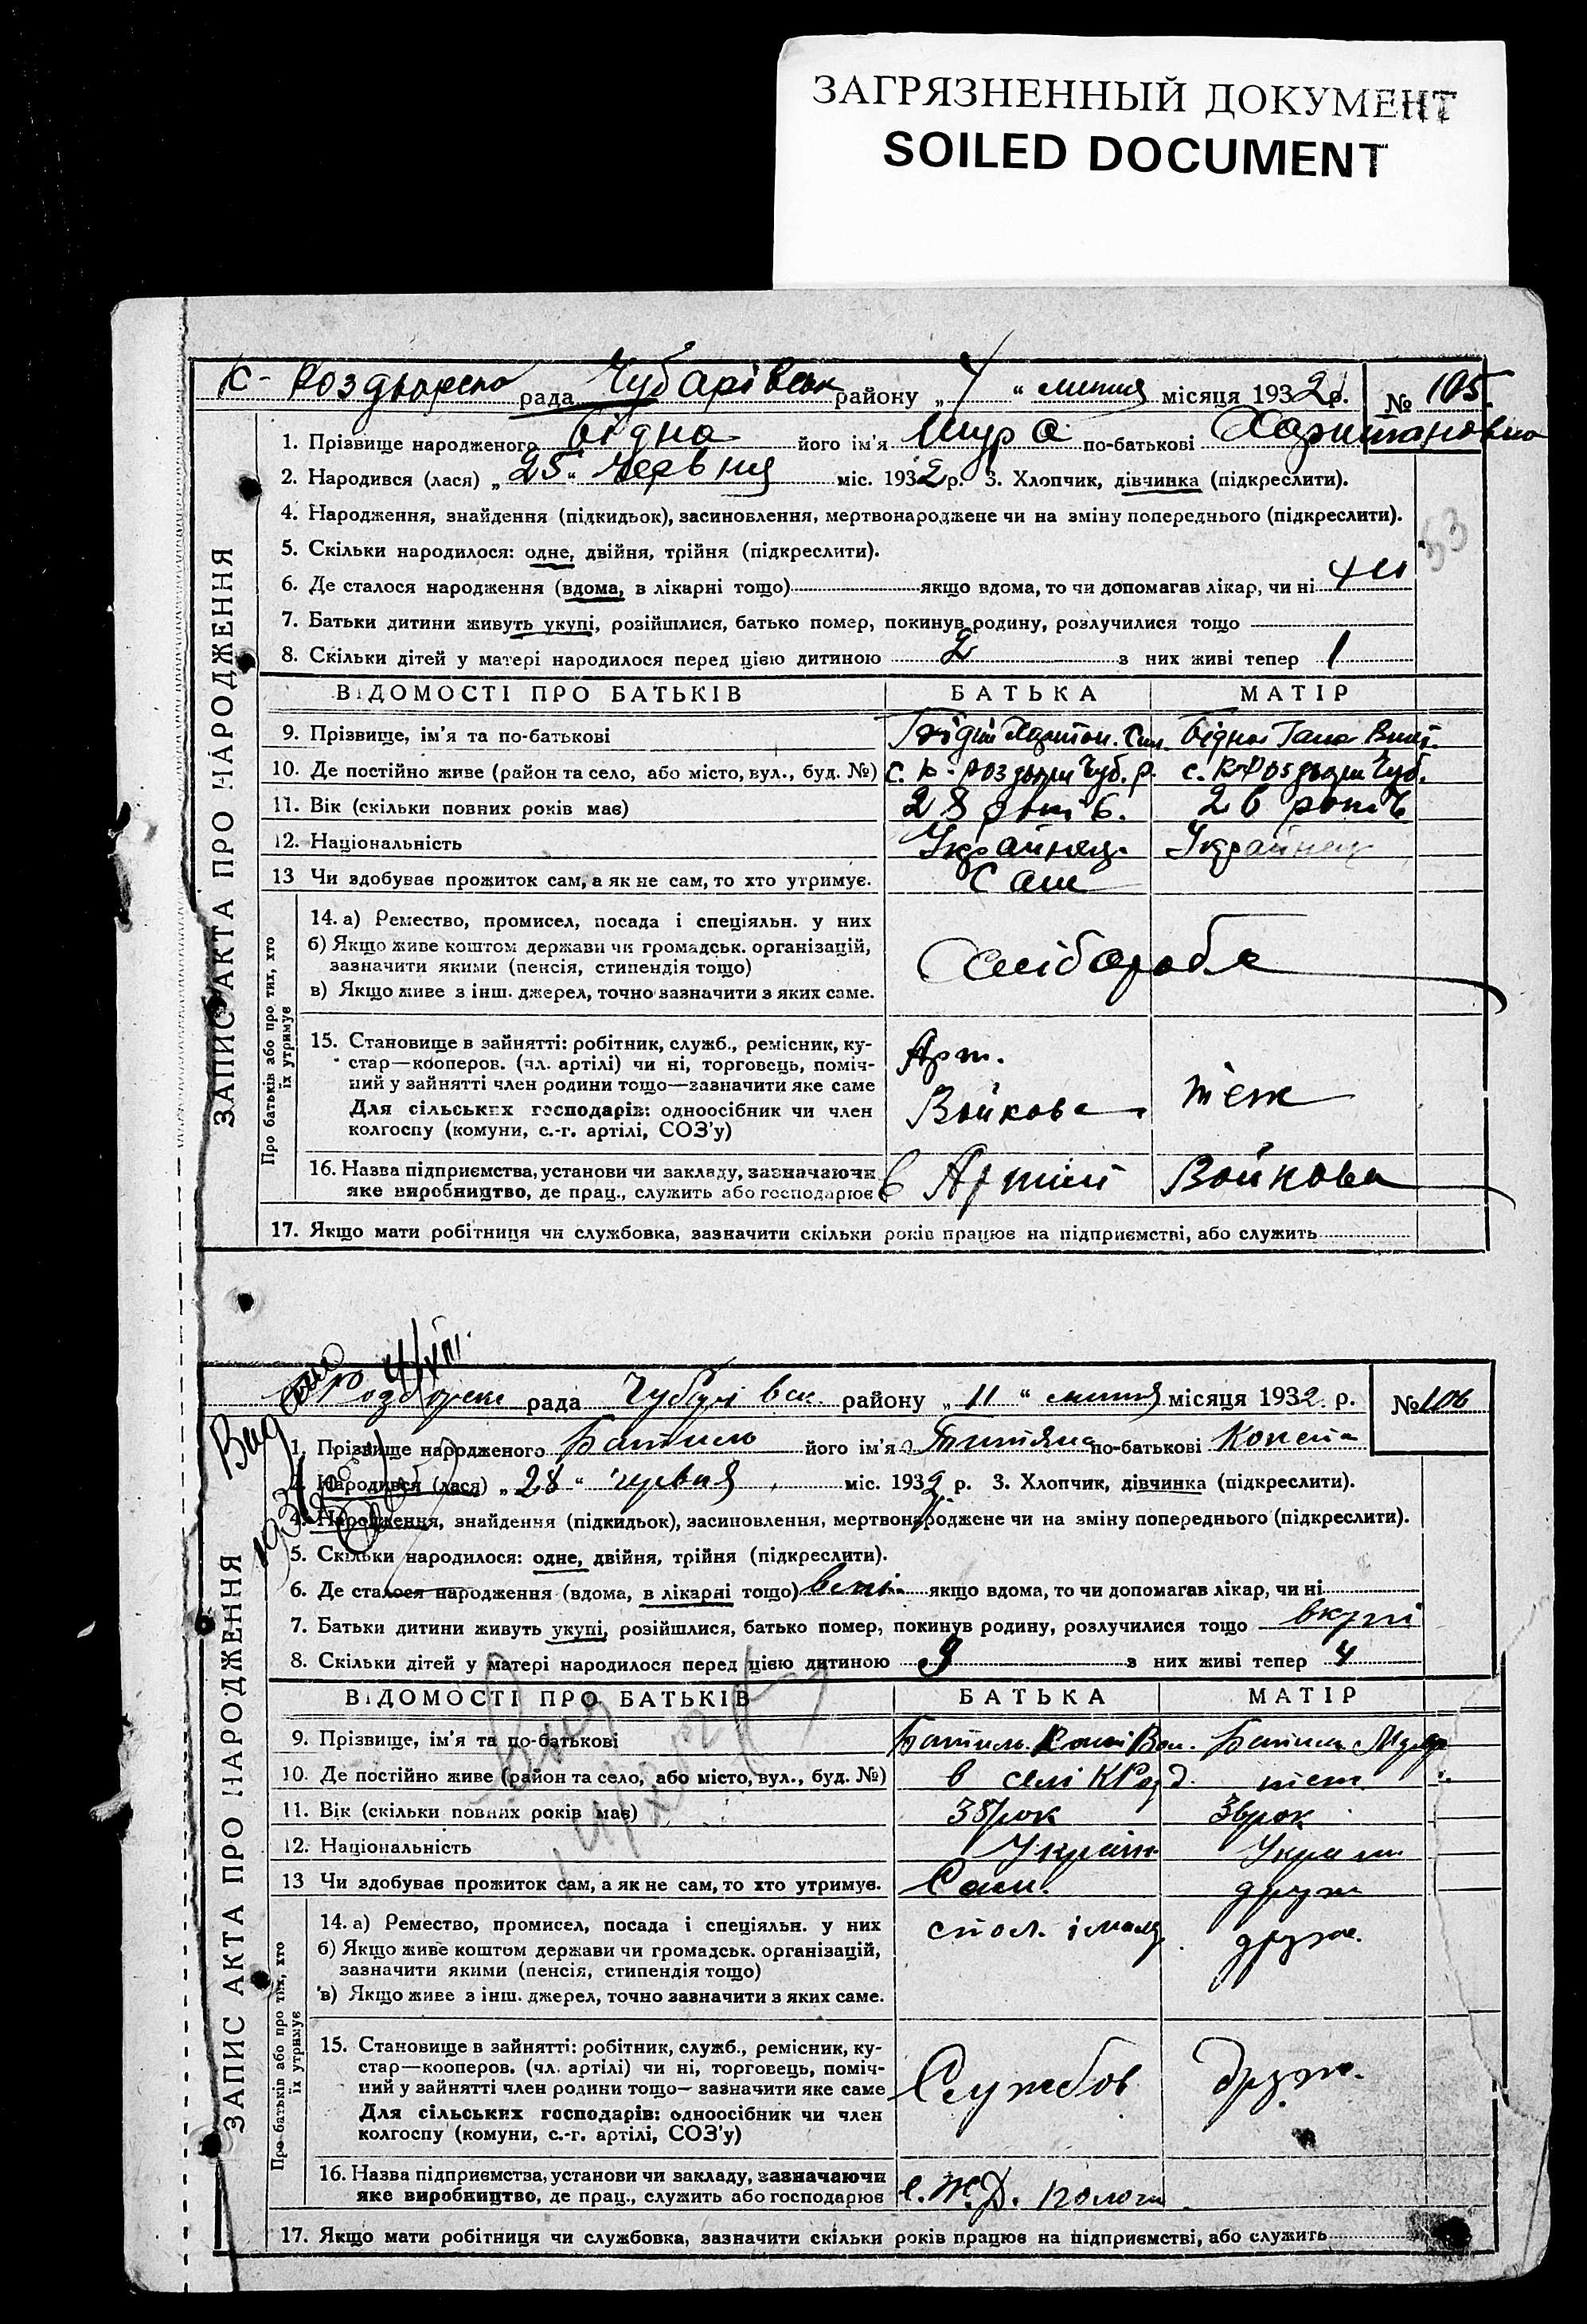 ЗАГРЯЗНЕННЫЙ ДОКУМЕНТ
SOILED DOCUMENT
ЗАПИС АКТА ПРО НАРОДЖЕННЯ
рада Чубарівськ району „ 7 “ липня місяця 1932 р. № 105.
1. Прізвище народженого Бідна його ім'я Шура по-батькові Харитоновна
2. Народився (лася) „ 25 “ червня міс. 1932 р. 3. Хлопчик, дівчинка (підкреслити).
4. Народження, знайдення (підкидьок), засиновлення, мертвонароджене чи на зміну попереднього (підкреслити).
53
5. Скільки народилося: одне, двійня, трійня (підкреслити).
6. Де сталося народження (вдома, в лікарні тощо) якщо вдома, то чи допомагав лікар, чи ні
7. Батьки дитини живуть укупі, розійшлися, батько помер, покинув родину, розлучилися тощо
8. Скільки дітей у матері народилося перед цією дитиною 2 з них живі тепер 1
ВІДОМОСТІ ПРО БАТЬКІВ БАТЬКА МАТІР
9. Прізвище, ім'я та по-батькові Бідна
10. Де постійно живе (район та село, або місто, вул., буд. №)
11. Вік (скільки повних років має) 28 років. 26 років
12. Національність Українец Українец
13 Чи здобуває прожиток сам, а як не сам, то хто утримує. Сам
Про батьків або про тих, хто їх утримує
14. а) Ремество, промисел, посада і спеціяльн. у них
б) Якщо живе коштом держави чи громадськ. організацій,
зазначити якими (пенсія, стипендія тощо) Хлібороб
в) Якщо живе з інш. джерел, точно зазначити з яких саме.
15. Становище в зайнятті: робітник, служб., ремісник, ку-
стар—кооперов. (чл. артілі) чи ні, торговець, поміч- Арт.
ний у зайнятті член родини тощо—зазначити яке саме
Для сільських господарів: одноосібник чи член Войкова теж
колгоспу (комуни, с.-г. артілі, СОЗ'у)
16. Назва підприємства, установи чи закладу, зазначаючи
яке виробництво, де прац., служить або господарює в Артілі Войкова
17. Якщо мати робітниця чи службовка, зазначити скільки років працює на підприємстві, або служить
ЗАПИС АКТА ПРО НАРОДЖЕННЯ
рада району „ 11 “ липня місяця 1932 р. № 106
1. Прізвище народженого його ім'я по-батькові
2. Народився (лася) „ 28 “ червня міс. 1932 р. 3. Хлопчик, дівчинка (підкреслити).
4. Народження, знайдення (підкидьок), засиновлення, мертвонароджене чи на зміну попереднього (підкреслити).
5. Скільки народилося: одне, двійня, трійня (підкреслити).
6. Де сталося народження (вдома, в лікарні тощо) якщо вдома, то чи допомагав лікар, чи ні
7. Батьки дитини живуть укупі, розійшлися, батько помер, покинув родину, розлучилися тощо вкупі
8. Скільки дітей у матері народилося перед цією дитиною з них живі тепер 4
ВІДОМОСТІ ПРО БАТЬКІВ БАТЬКА МАТІР
9. Прізвище, ім'я та по-батькові
10. Де постійно живе (район та село, або місто, вул., буд. №) в селі теж
11. Вік (скільки повних років має) 36 рок
12. Національність Україн
13 Чи здобуває прожиток сам, а як не сам, то хто утримує. Сам. друж
Про батьків або про тих, хто їх утримує
14. а) Ремество, промисел, посада і спеціяльн. у них друж.
б) Якщо живе коштом держави чи громадськ. організацій,
зазначити якими (пенсія, стипендія тощо)
в) Якщо живе з інш. джерел, точно зазначити з яких саме.
15. Становище в зайнятті: робітник, служб., ремісник, ку-
стар—кооперов. (чл. артілі) чи ні, торговець, поміч-
ний у зайнятті член родини тощо—зазначити яке саме Службов друж.
Для сільських господарів: одноосібник чи член
колгоспу (комуни, с.-г. артілі, СОЗ'у)
16. Назва підприємства, установи чи закладу, зазначаючи
яке виробництво, де прац., служить або господарює
17. Якщо мати робітниця чи службовка, зазначити скільки років працює на підприємстві, або служить